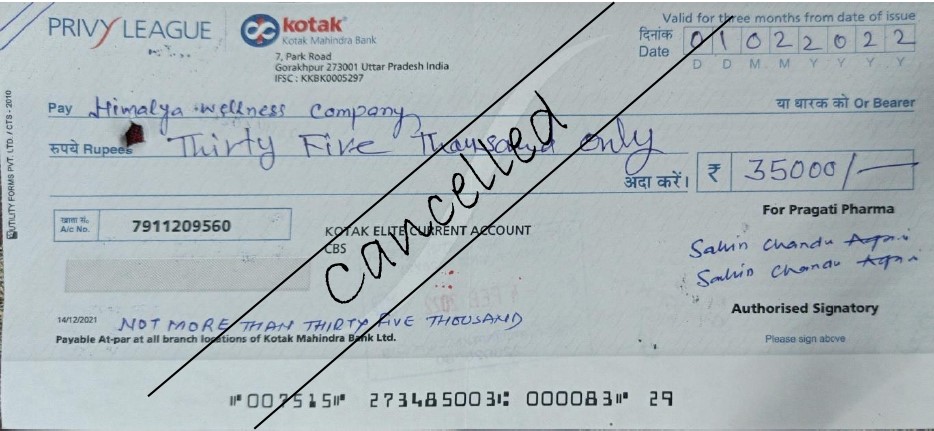 PRIVY LEAGUE
kotak
Kotak Mahindra Bank
7, Park Road
Gorakhpur 273001 Uttar Pradesh India
IFSC : KKBK0005297
Valid for three months from date of issue
दिनांक
Date 01022022
D D M M Y Y Y Y
Pay Himalya wellness Company या धारक को Or Bearer
रुपये Rupees Thirty Five Thousand only
अदा करें। ₹ 35000/-
Cancelled
खाता सं.
A/c No. 7911209560
KOTAK ELITE CURRENT ACCOUNT
CBS
For Pragati Pharma
Chandu
Chandu
Authorised Signatory
Please sign above
14/12/2021 NOT MORE THAN THIRTY FIVE THOUSAND
Payable At-par at all branch locations of Kotak Mahindra Bank Ltd.
UTILITY FORMS PVT. LTD. / CTS - 2010
⑈007515⑈ 273485003⑆ 000083⑈ 29